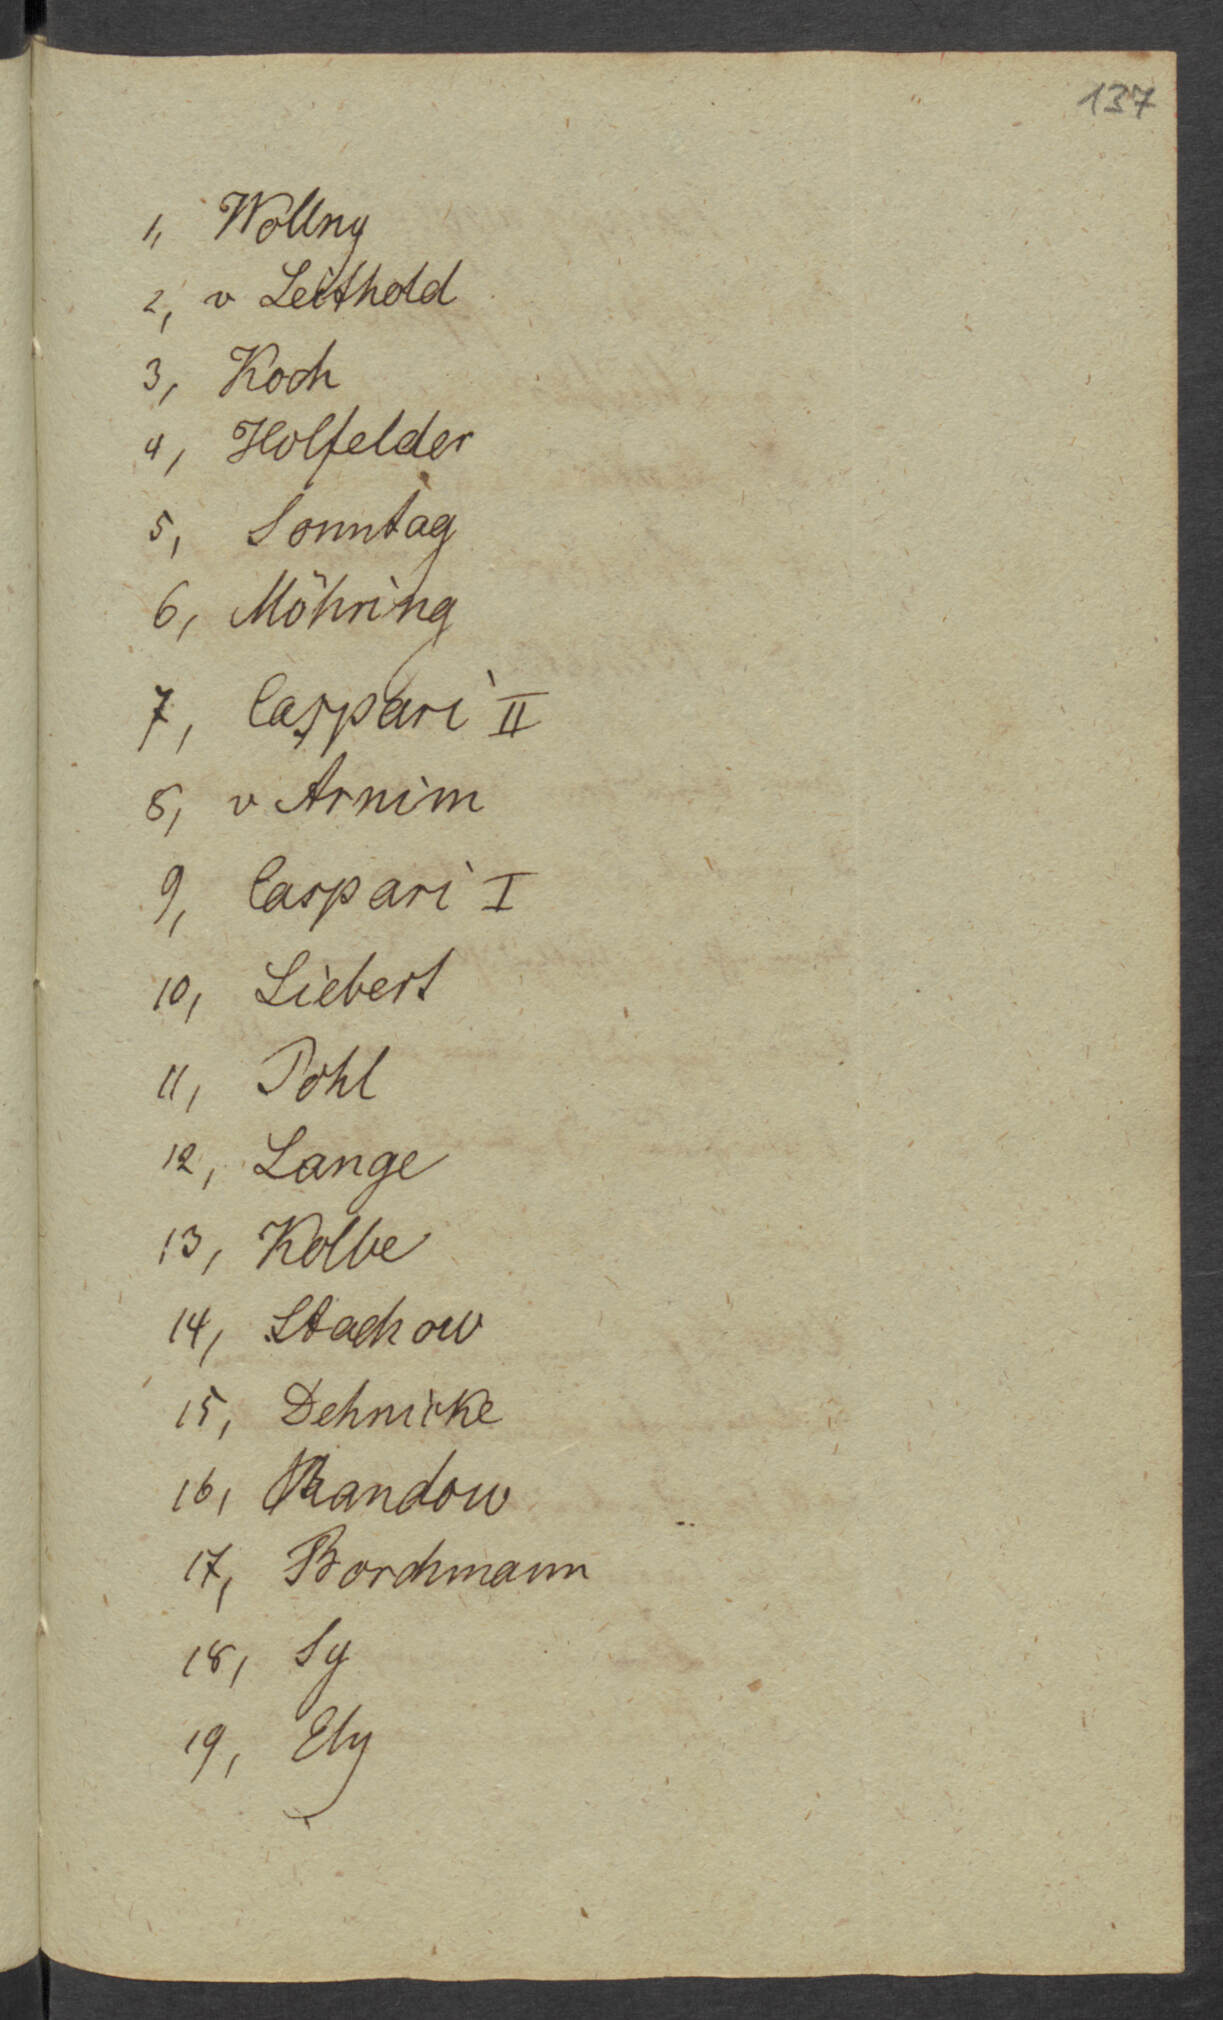 137
1, Wollny
2, v Leithold
3, Koch
4, Holfelder
5, Sonntag
6, Möhring
7, Caspari II
8, v Arnim
9, Caspari I
10, Liebert
11, Pohl
12, Lange
13, Kolbe
14, Stachow
15, Dehnicke
16, Randow
17, Borchmann
18, Sy
19, Ely